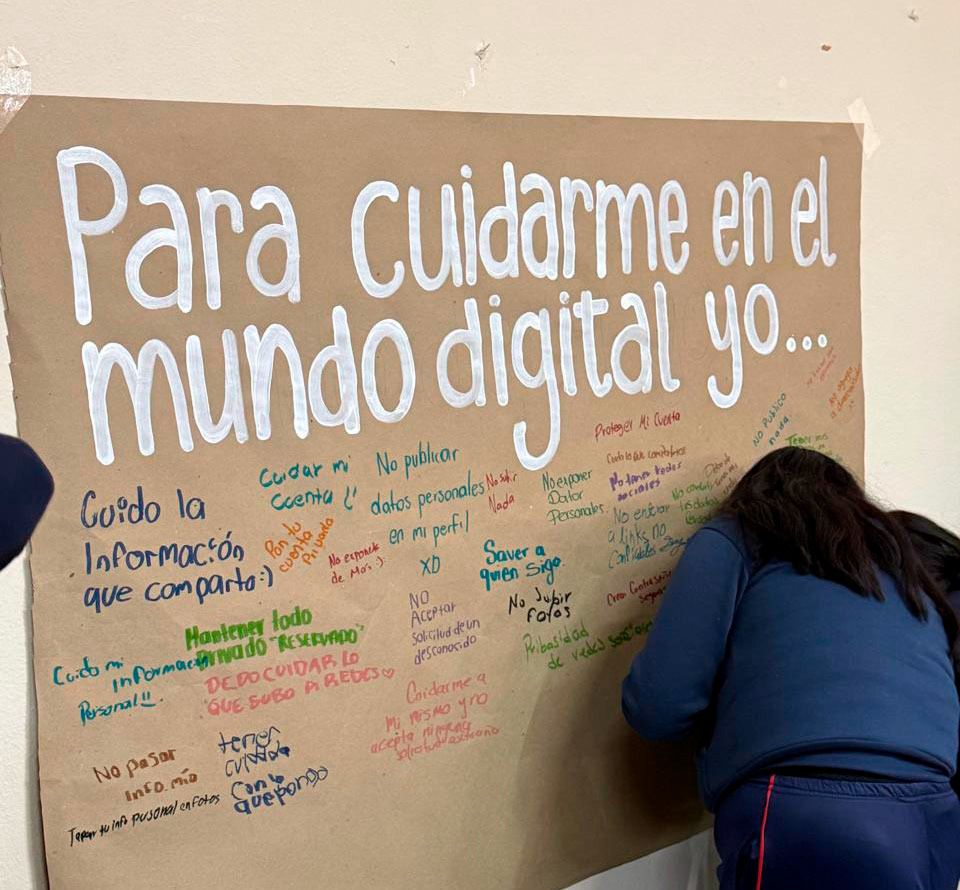 Para cuidarme en el
mundo digital yo...
Cuido la
Información
que comparto:)
Cuidar mi
cuenta
No publicar
datos personales
en mi perfil
XD
No subir
Nada
No exponer
Dator
Personales
Proteger Mi Cuenta
No tener redes
sociales
No entrar
a links no
No Publico
nada
Tener mis
Pon tu
cuenta
Privada
No exponerte
de Mas :)
Saver a
quien sigo
No subir
Fotos
Pribasidad
de redes
Crear Contraseñas
Mantener todo
Privado "RESERVADO"
DEDO CUIDAR LO
QUE SUBO A REDES♡
NO
Aceptar
solicitud de un
desconosido
Cuido mi
Informacion
Personal!!
Cuidarme a
Mi mismo y no
acepta ninguna
No pasar
info. mía
tener
cuidado
Con lo
que pongo
Tapar tu info pusonal en Fotos